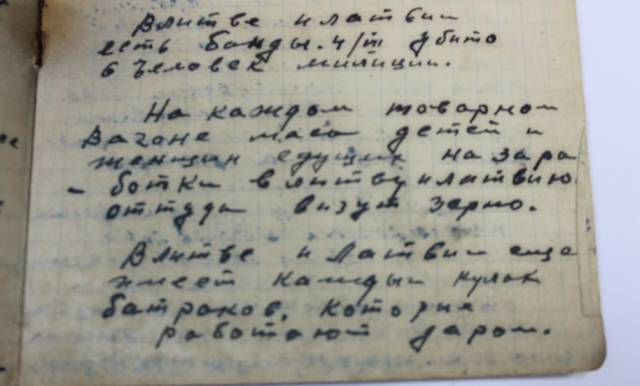 В литве и латвии
есть банды. 4/III убито
6 человек милиции.
На каждом товарном
вагоне маса детей и
женщин едущих на зара
- ботки в литву и латвию
оттуда визут зерно.
В литве и Латвии еще
имеет каждый кулак
батраков, которые
работают даром.